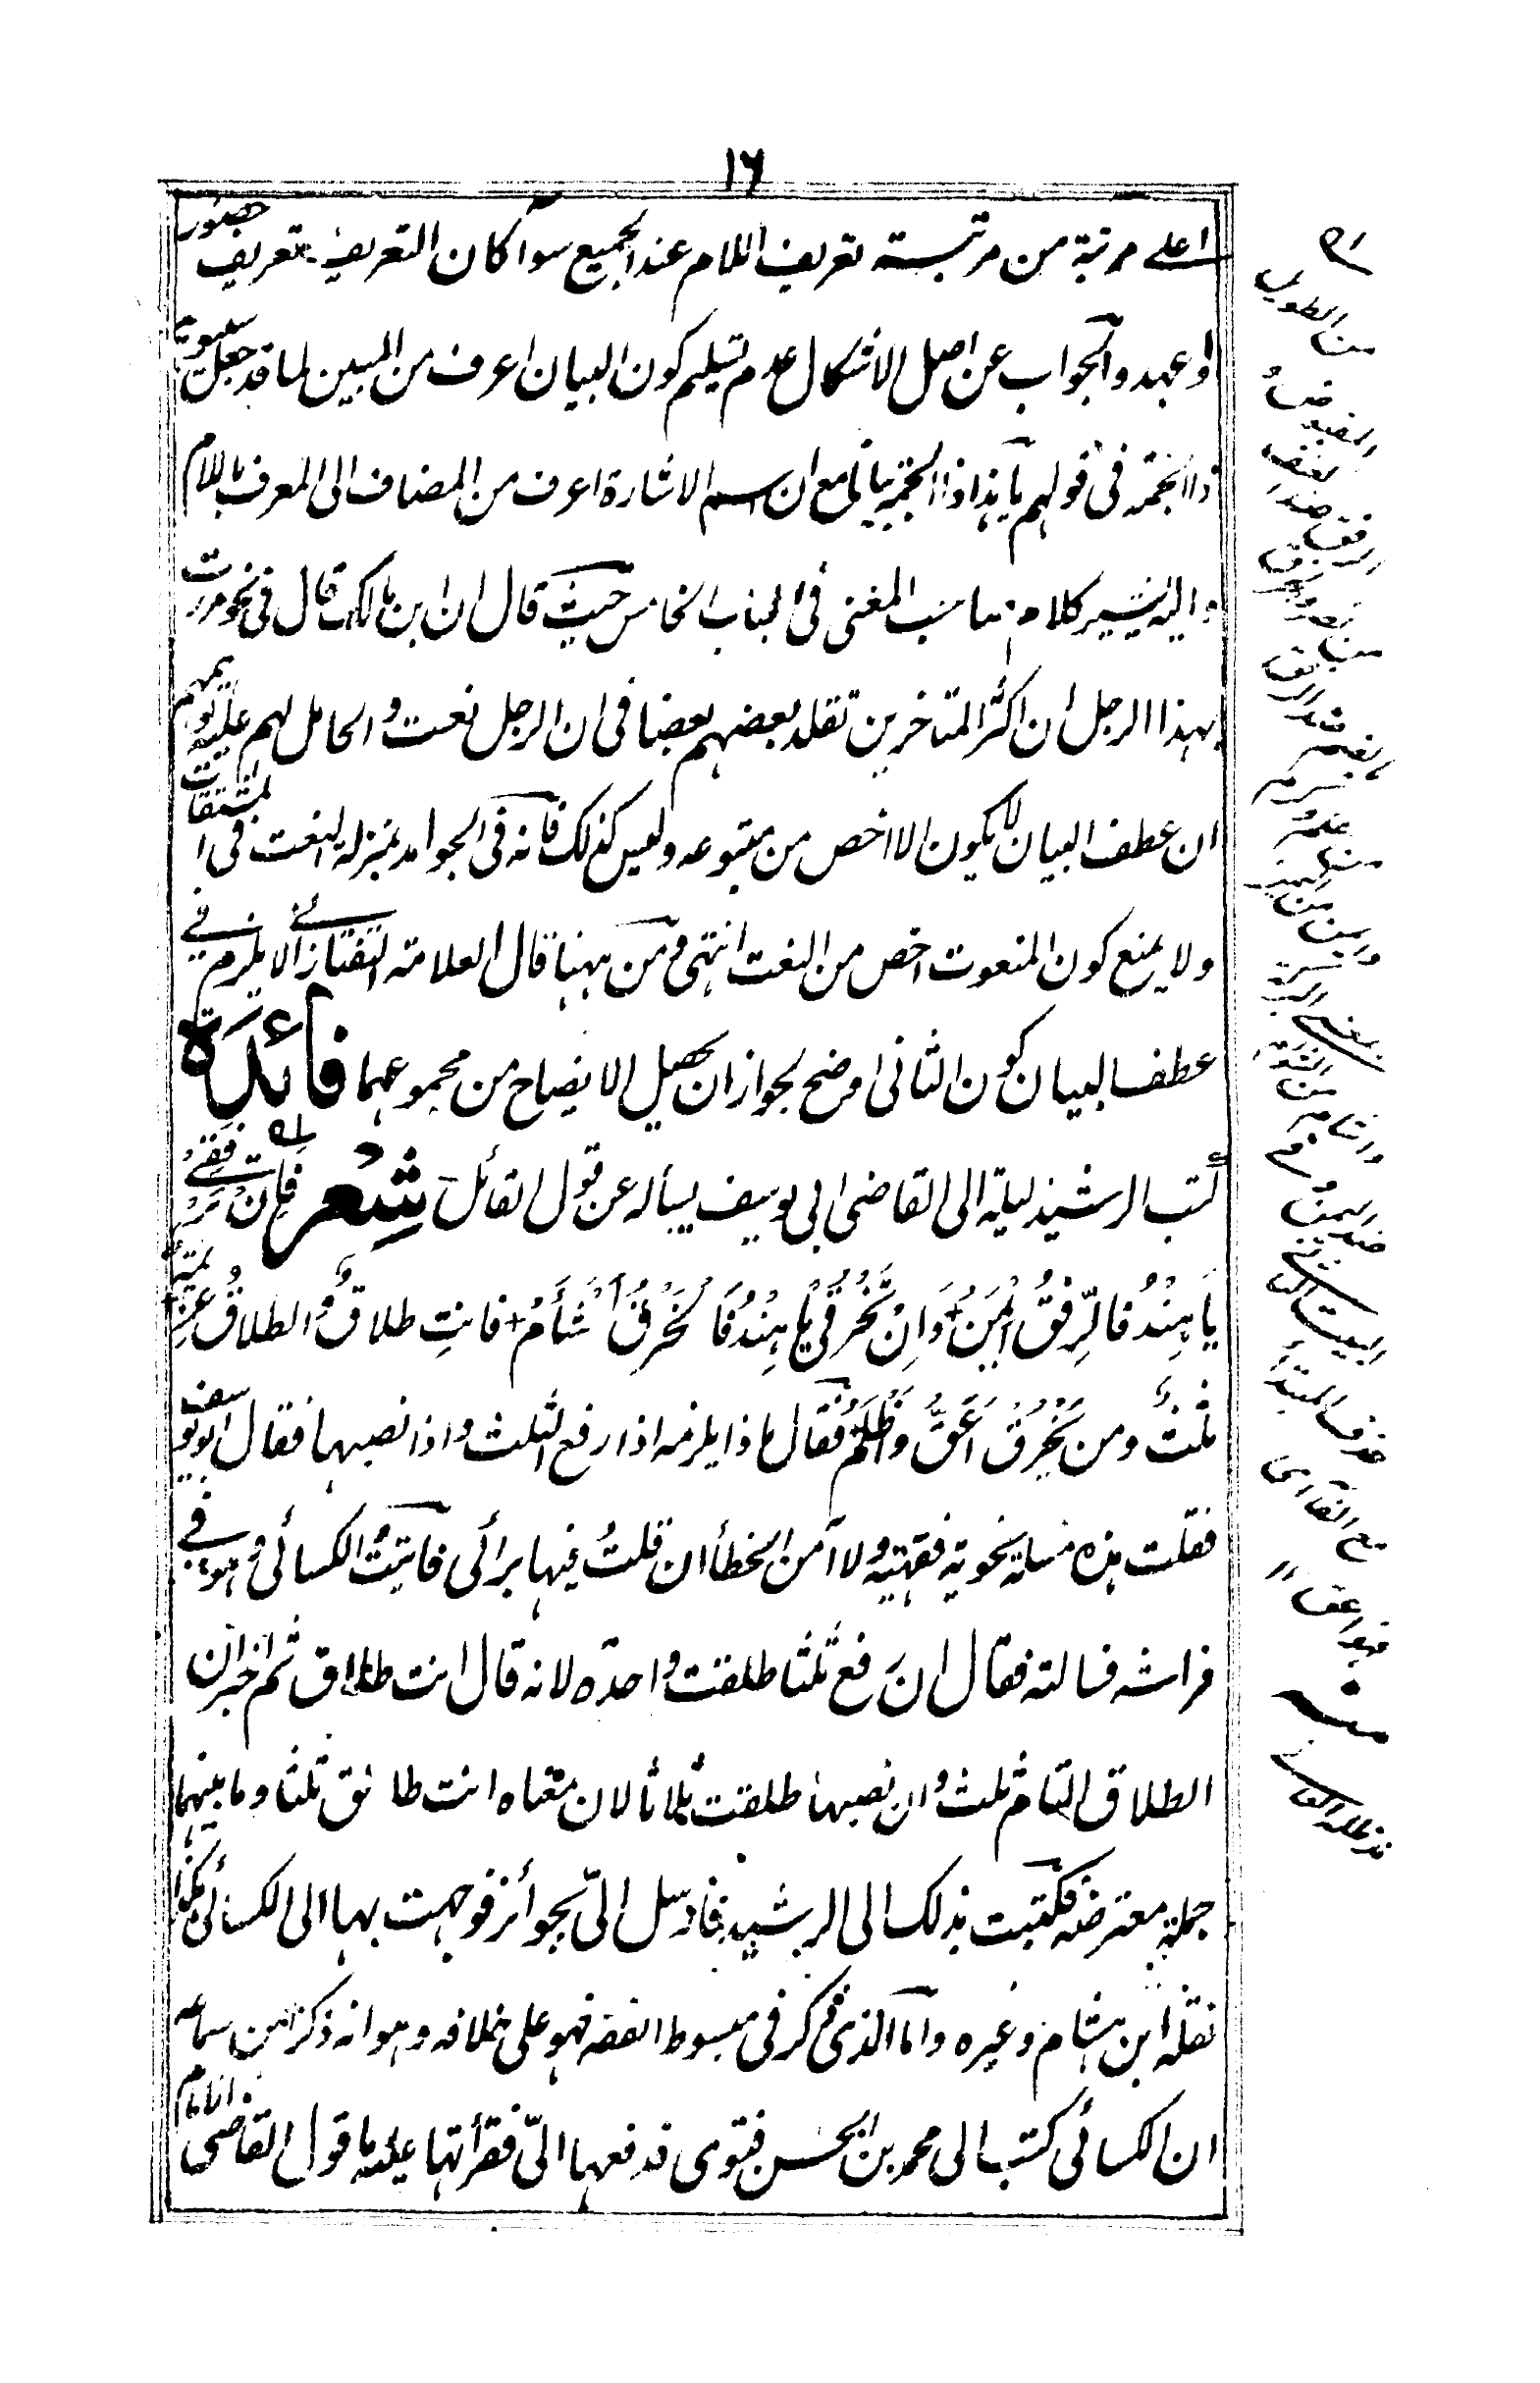 ١٦
اعلى مرتبة من مرتبة تعريف اللام عند الجميع سوآ كان التعريف تعريف حضور
او عهد والجواب عن اصل الاشكال عدم تسليم كون البيان اعرف من المبين لما قد جعل سيبويه
ذا الجمة فى قولهم يا هذا ذا الجمة بيانا مع ان اسم الاشارة اعرف من المضاف الى المعرف باللام
واليه يشير كلام صاحب المغنى فى الباب الخامس حيث قال ان ابن مالك قال فى نحو مررت
بهذا الرجل ان اكثر المتاخرين تقلد بعضهم بعضا فى ان الرجل نعت والحامل لهم عليه توهمهم
ان عطف البيان لا يكون الا اخص من متبوعه وليس كذلك فانه فى الجوامد بمنزلة النعت فى المشتقات
ولا يمنع كون المنعوت اخص من النعت انتهى ومن ههنا قال العلامة التفتازانى لا يلزم فى
عطف البيان كون الثانى اوضح لجواز ان يحصل الايضاح من مجموعهما فائدة
كتب الرشيد ليلة الى القاضى ابى يوسف يساله عن قول القائل شعر فان ترفقى
يا هند فالرفق ايمن + وان تخرقى يا هند فالخرق اشأم + فانت طلاق والطلاق عزيمة
ثلث ومن يخرق اعق واظلم فقال ما ذا يلزمه اذا رفع الثلث واذا نصبها فقال ابو يوسف
فقلت هذه مسالة نحوية فقهية ولا آمن الخطأ ان قلت فيها برائى فاتيت الكسائى وهو فى
فراشه فسالته فقال ان رفع ثلثا طلقت واحدة لانه قال انت طلاق ثم اخبر ان
الطلاق التام ثلث وان نصبها طلقت ثلاثا لان معناه انت طالق ثلثا وما بينهما
جملة معترضة فكتبت بذلك الى الرشيد فارسل الىّ بجوائز فوجهت بها الى الكسائى هكذا
نقله ابن هشام وغيره واما الذى ذكر فى مبسوط الفقه فهو على خلافه وهو انه ذكر ابن سماعه
ان الكسائى كتب الى محمد بن الحسن فتوى فدفعها الىّ فقرأتها عليه ما قول القاضى الامام
من الطويل
المقبوض
الرفق ضد العنف
البيت الثانى
حذف المبتدأ
مع الفاء اى
فهو اعق
منه
مد ظله العالى